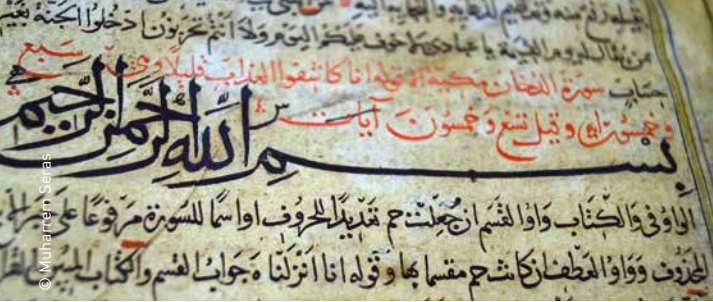 من يقال لهم يوم القيمة يا عبادي لا خوف عليكم اليوم ولا أنتم تحزنون ادخلوا الجنة بغير
حساب سورة الدخان مكية الا قوله انا كاشفوا العذاب قليلا وهي سبع
وخمسون اية وقيل تسع وخمسون آيات
بسم الله الرحمن الرحيم
الواو في والكتاب واو القسم ان جعلت حم تعديدا للحروف او اسما للسورة مرفوعا على خبر
المحذوف وواو العطف ان كانت حم مقسما بها وقوله انا انزلناه جواب القسم والكتاب المبين
© Muharrem Seras